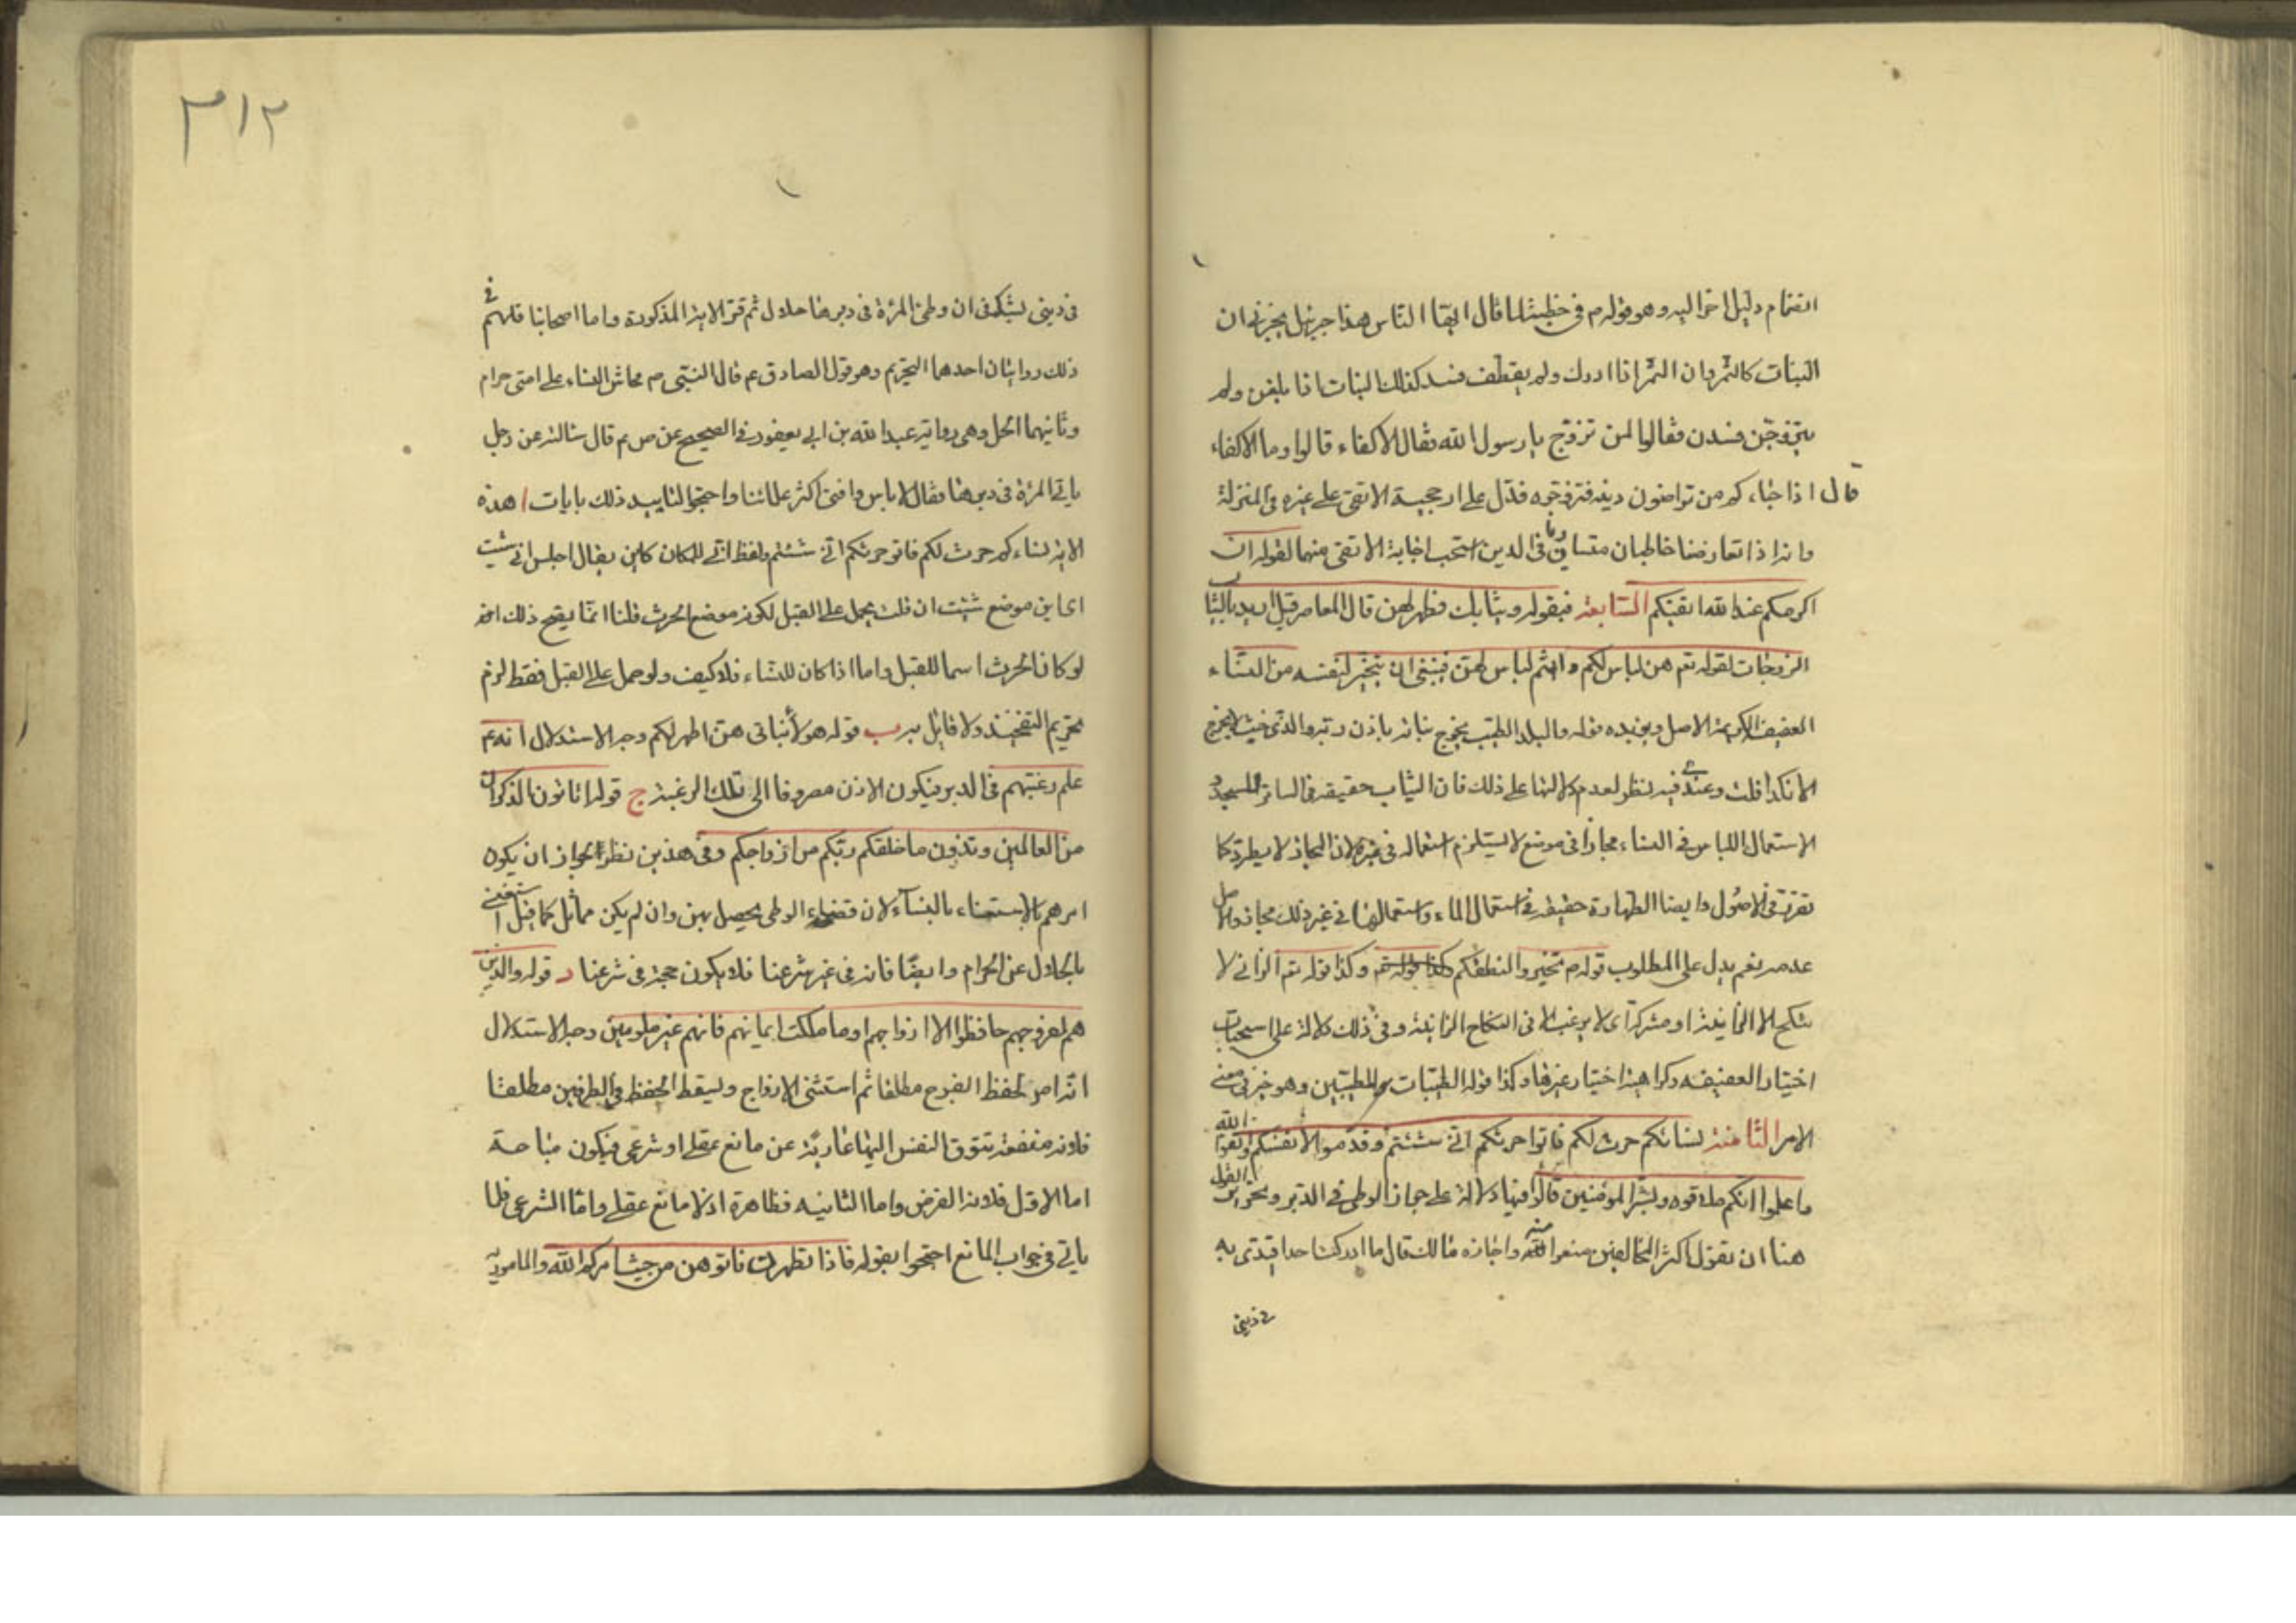 انضمام دليل اخر اليه وهو قوله ص في خطبته لما قال ايها الناس هذا جبرئيل يخبرني ان
البنات كالثمر وان الثمر اذا ادرك ولم يقطف فسد كذلك البنات اذا بلغن ولم
يتزوجن فسدن فقالوا لمن تزوج يا رسول الله فقال الاكفاء قالوا وما الاكفاء
قال اذا جاءكم من ترضون دينه فزوجوه فدل على ارجحية الاتقى على غيره في المنزلة
وانه اذا تعارضا خاطبان متساويان في الدين استحب اجابة الاتقى منهما لقوله ان
اكرمكم عند الله اتقيكم السابعة فبقوله وثيابك فطهر لهن قال المعاصر قيل اريد بالثياب
الزوجات لقوله تع هن لباس لكم وانتم لباس لهن فينبغي ان يتخير لنفسه من النساء
العفيفة الكريمة الاصل ويؤيده قوله والبلد الطيب يخرج نباته باذن ربه والذي خبث لا يخرج
الا نكدا قلت وعندي فيه نظر لعدم دلالتها على ذلك فان الثياب حقيقة في الساتر للجسد و
الاستعمال اللباس في النساء مجازا في موضع لا يستلزم استعماله في غيره لان المجاز لا يطرد كما
تقرر في الاصول وايضا الطهارة حقيقة في استعمال الماء واستعمالها في غير ذلك مجاز والاصل
عدمه نعم يدل على المطلوب قوله ص تخيروا لنطفكم وكذا قوله تع الزاني لا
ينكح الا الزانية او مشركة اي لا يرغب الا في النكاح الزانية وفي ذلك دلالة على استحباب
اختيار العفيفه وكراهية اختيار غيرها وكذا قوله الطيبات للطيبين وهو خبر في معنى
الامر الثامنة نسائكم حرث لكم فاتوا حرثكم انى شئتم وقدموا لانفسكم واتقوا الله
واعلموا انكم ملاقوه وبشر المؤمنين قالوا فيها دلالة على جواز الوطى في الدبر وتحرير القول
هنا ان نقول اكثر المخالفين منعوا منه واجازه مالك قال ما ادركت احدا اقتدى به
في ديني
٣١٢
في ديني يشك في ان وطى المرأة في دبرها حلال ثم قرء الاية المذكورة واما اصحابنا فلهم في
ذلك روايتان احدهما التحريم وهو قول الصادق ع قال النبي ص محاش النساء على امتى حرام
وثانيهما الحل وهى رواية عبد الله بن ابي يعفور في الصحيح عن ص ع قال سالته عن رجل
ياتى المرأة في دبرها فقال لا باس وافتى اكثر علمائنا واحتجوا لتاييد ذلك بايات ا هذه
الاية نساءكم حرث لكم فاتو حرثكم انى شئتم ولفظ انى للمكان كاين يقال اجلس انى شئت
اى اين موضع شئت ان قلت يحمل على القبل لكونه موضع الحرث قلنا انما يقع ذلك انه
لو كان الحرث اسما للقبل واما اذا كان للنساء فلا كيف ولو حمل على القبل فقط لزم
تحريم التفخيذ ولا قايل به ب قوله هؤلاء بناتى هن اطهر لكم وجه الاستدلال انه ع
علم رغبتهم في الدبر فيكون الاذن مصروفا الى تلك الرغبة ج قوله اتاتون الذكران
من العالمين وتذرون ما خلقكم ربكم من ازواجكم وفي هذين نظر لجواز ان يكون
امرهم بالاستغناء بالنساء لان قضاء الوطى يحصل بهن وان لم يكن مماثل كما قيل استغنى
بالحلال عن الحرام وايضا فانه في غير شرعنا فلا يكون حجة في شرعنا د قوله والذين
هم لفروجهم حافظوا الا ازواجهم او ما ملكت ايمانهم فانهم غير ملومين وجه الاستدلال
انه امر لحفظ الفرج مطلقا ثم استثنى الازواج وليسقط الحفظ في الطرفين مطلقا
ولانه منفعة تتوق النفس اليها عارية عن مانع عقلى او شرعى فيكون مباحة
اما الاول فلانه الفرض واما الثانيه فظاهرة اذ لا مانع عقلى واما الشرعى فلما
ياتى في جواب المانع احتجوا بقوله فاذا تطهرن فاتوهن من حيث امركم الله والمامور به